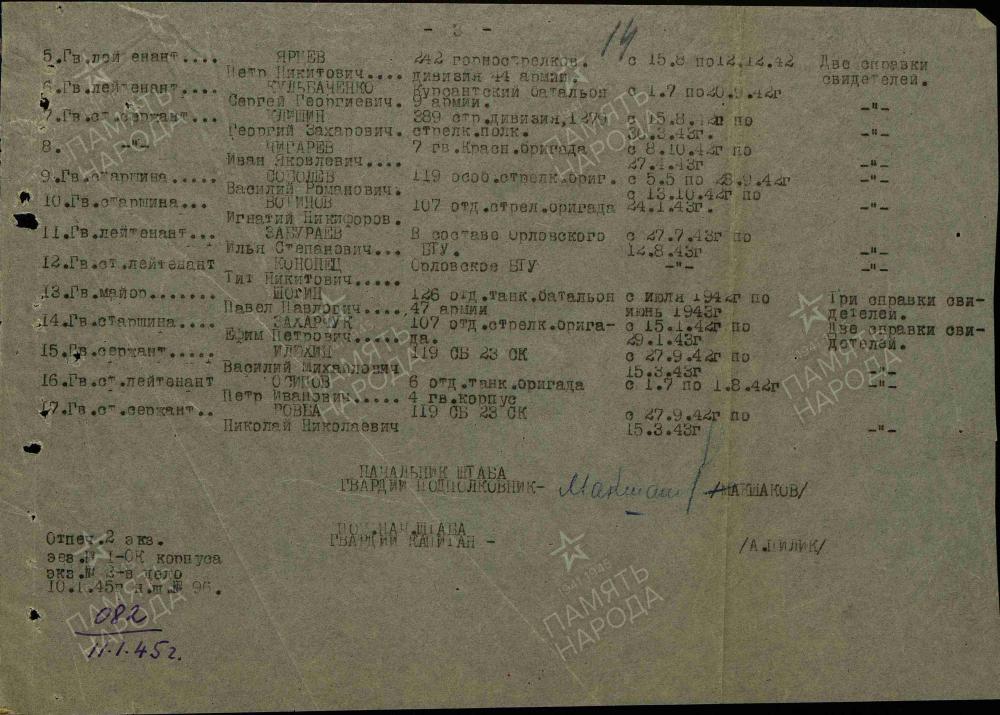 - 3 -
14
5.Гв.лейтенант.... ЯРЦЕВ 242 горнострелков. с 15.8 по12.12.42 Две справки
Петр Никитович.... дивизия 44 армии. свидетелей.
6.Гв.лейтенант.... КУЛЬБАЧЕНКО Курсантский батальон с 1.7 по20.9.42г
Сергей Георгиевич. 9 армии. -"-
7.Гв.ст.сержант... 389 стр.дивизия,1279 с 15.8.42г по
Георгий Захарович. стрелк.полк. 30.3.43г. -"-
8. -"- ЧИГАРЕВ 7 гв.Красн.бригада с 8.10.42г по
Иван Яковлевич.... 27.4.43г -"-
9.Гв.старшина..... СОБОЛЕВ 119 особ.стрелк.бриг. с 5.5 по 28.9.42г
Василий Романович. с 13.10.42г по -"-
10.Гв.старшина... ВОТИНОВ 107 отд.стрел.бригада 24.1.43г. -"-
Игнатий Никифоров.
11.Гв.лейтенант... ЗАБУРАЕВ В составе Орловского с 27.7.43г по
Илья Степанович... ВТУ. 12.8.43г -"-
12.Гв.ст.лейтенант КОНОНЕЦ Орловское ВТУ -"- -"-
Тит Никитович.....
13.Гв.майор....... ШОТИН 126 отд.танк.батальон с июля 1942г по Три справки сви-
Павел Павлович.... 47 армии июнь 1943г детелей.
14.Гв.старшина.... ЗАХАРЧУК 107 отд.стрелк.брига- с 15.1.42г по Две справки сви-
Ефим Петрович..... да. 29.1.43г детелей.
15.Гв.сержант..... ИЛЮХИН 119 СБ 23 СК с 27.9.42г по
Василий Михайлович 15.3.43г -"-
16.Гв.ст.лейтенант ОСИПОВ 6 отд.танк.бригада с 1.7 по 1.8.42г -"-
Петр Иванович..... 4 гв.корпус
17.Гв.ст.сержант.. РОВБА 119 СБ 23 СК с 27.9.42г по
Николай Николаевич 15.3.43г -"-
НАЧАЛЬНИК ШТАБА
ГВАРДИИ ПОДПОЛКОВНИК- /МАКШАКОВ/
ПОМ.НАЧ.ШТАБА
ГВАРДИИ КАПИТАН - /А.ЦИЛИК/
Отпеч.2 экз.
экз.№ 1-ОК корпуса
экз.№ 2-в дело
10.1.45г н.ш.№ 96.
082
11.1.45г.
ПАМЯТЬ НАРОДА
1941-1945